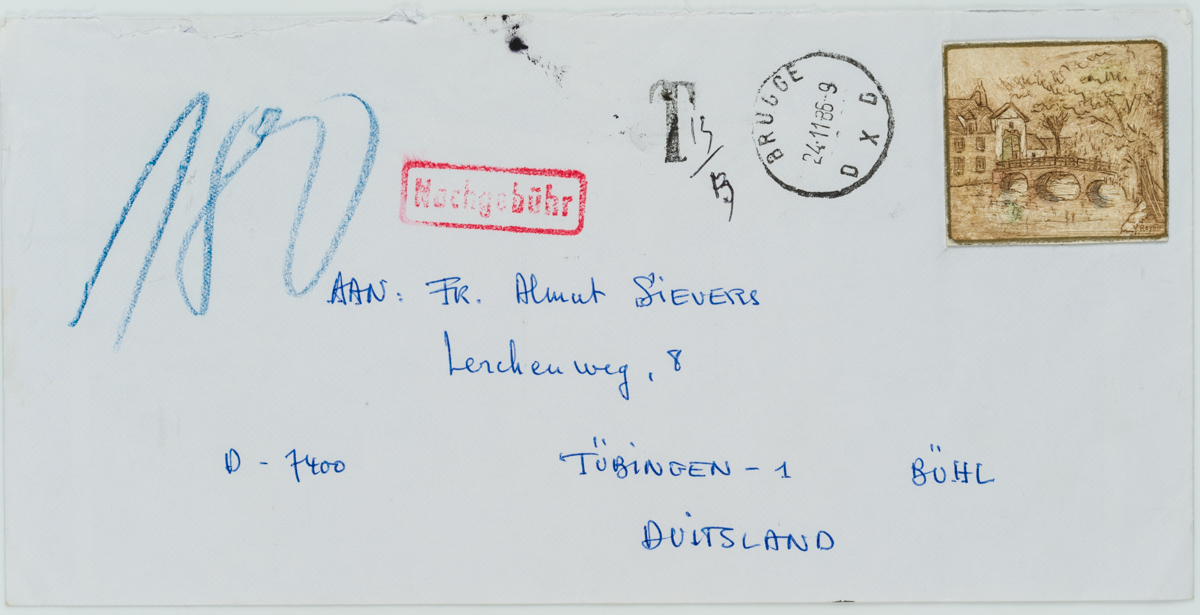 180
Nachgebühr
T 13/13
BRUGGE
24·11 86-9
D X D
AAN: FR. Almut SIEVERS
Lerchenweg, 8
D - 7400 TÜBINGEN - 1 BÜHL
DUITSLAND